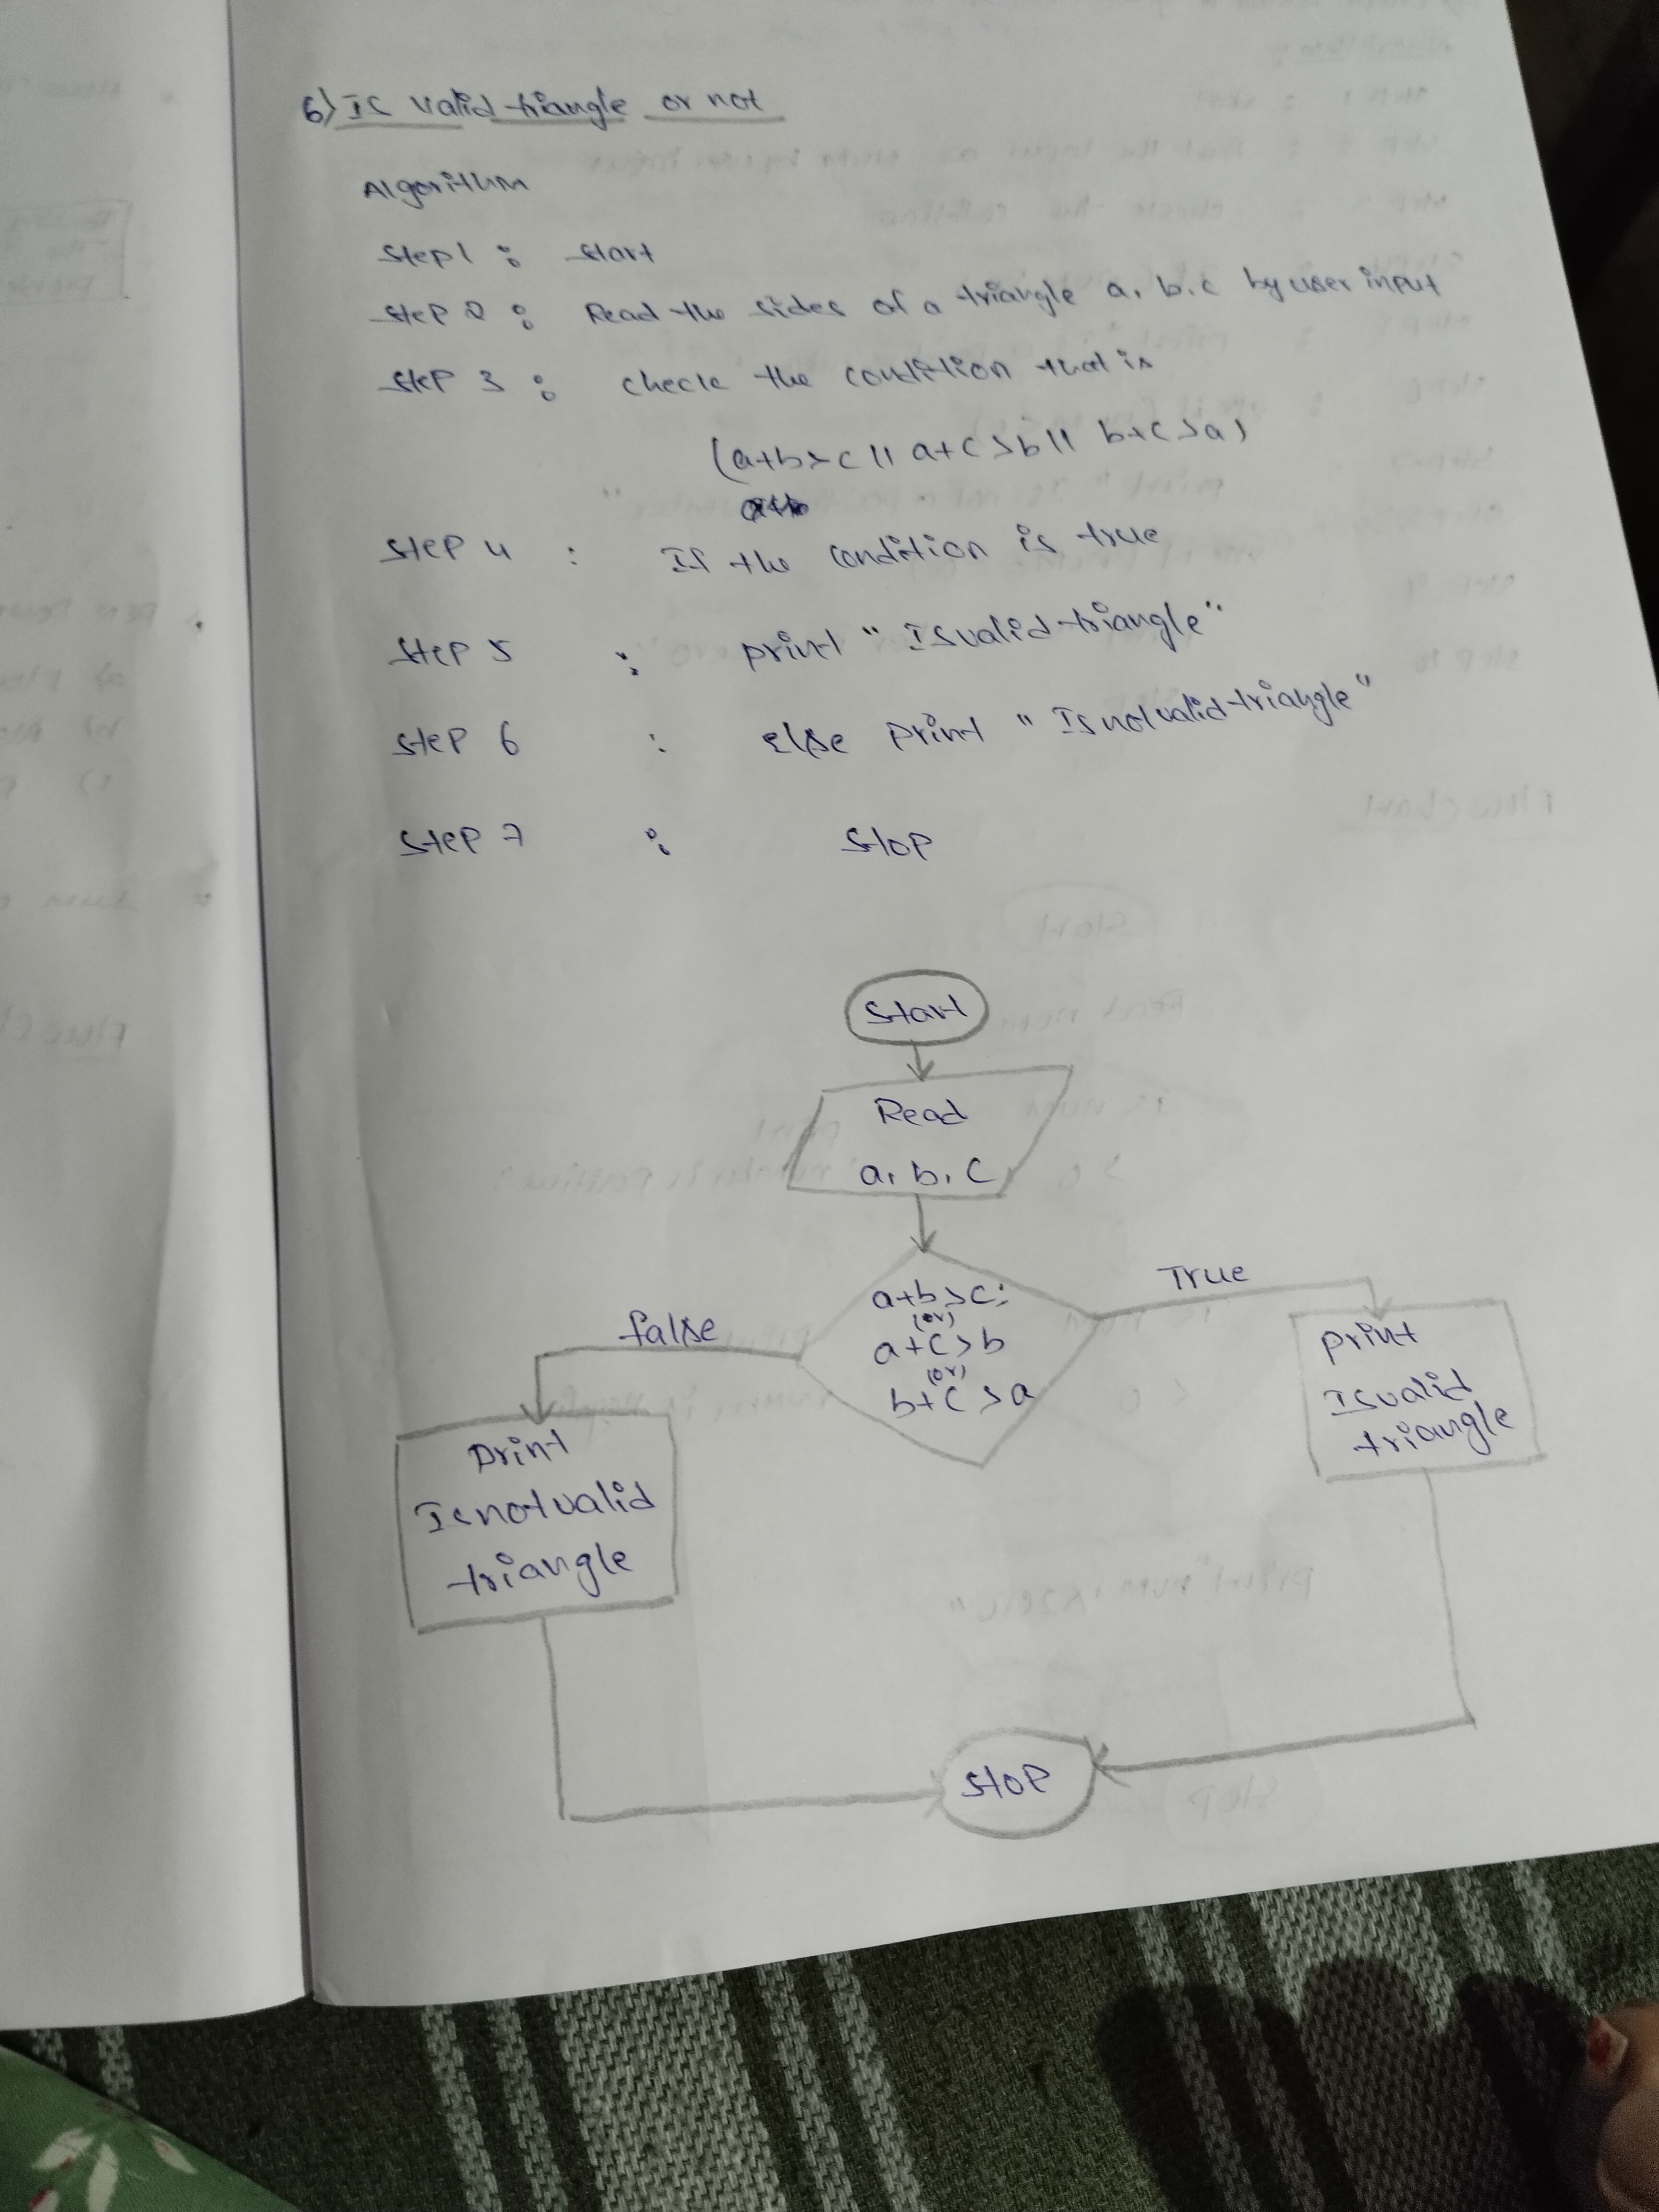 6) Is valid triangle or not
Algorithm
Step 1 : Start
Step 2 : Read the sides of a triangle a, b, c by user input
Step 3 : check the condition that is
(a+b>c || a+c>b || b+c>a)
Step 4 : If the condition is true
Step 5 : print "Is valid triangle"
Step 6 : else print "Is not valid triangle"
Step 7 : Stop
Start
Read
a, b, c
a+b>c;
(or)
a+c>b
(or)
b+c>a
True
false
print
Is valid
triangle
Print
Is not valid
triangle
Stop